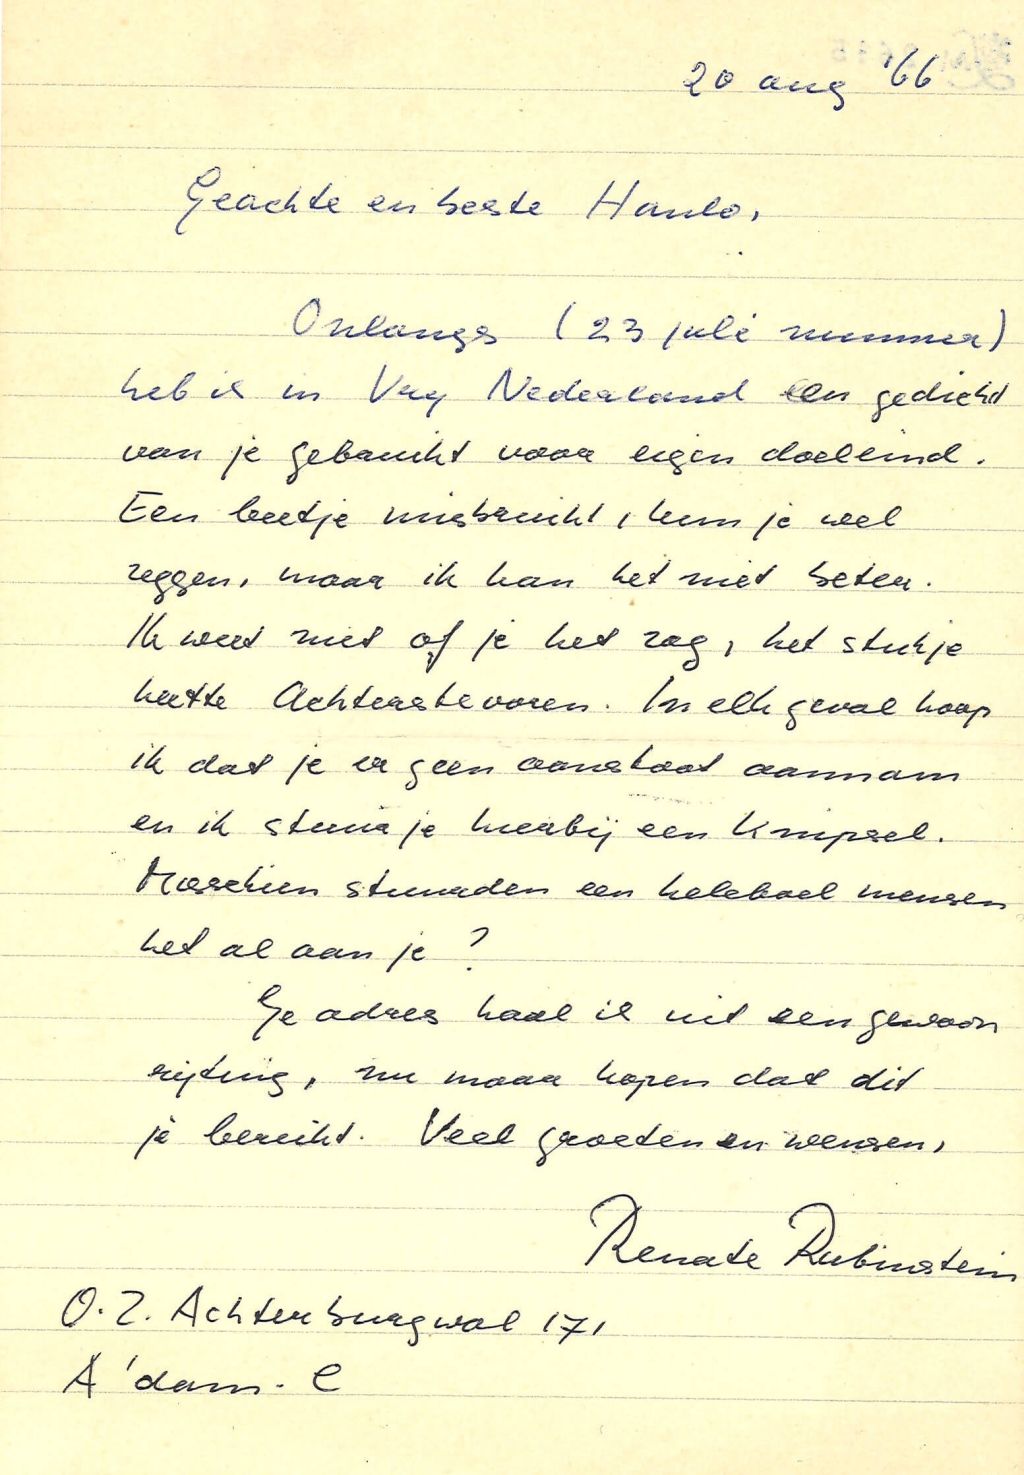 20 aug '66
Geachte en beste Hanlo,
Onlangs (23 juli nummer)
heb ik in Vrij Nederland een gedicht
van je gebruikt voor eigen doeleind.
Een beetje misbruikt, kun je wel
zeggen, maar ik kan het niet beter.
Ik weet niet of je het zag, het stukje
heette Achterstevoren. In elk geval hoop
ik dat je er geen aanstoot aannam
en ik stuur je hierbij een knipsel.
Misschien stuurden een heleboel mensen
het al aan je?
Je adres haal ik uit een gewoon
, nu maar hopen dat dit
je bereikt. Veel groeten en wensen,
Renate Rubinstein
O.Z. Achterburgwal 171
A'dam. C